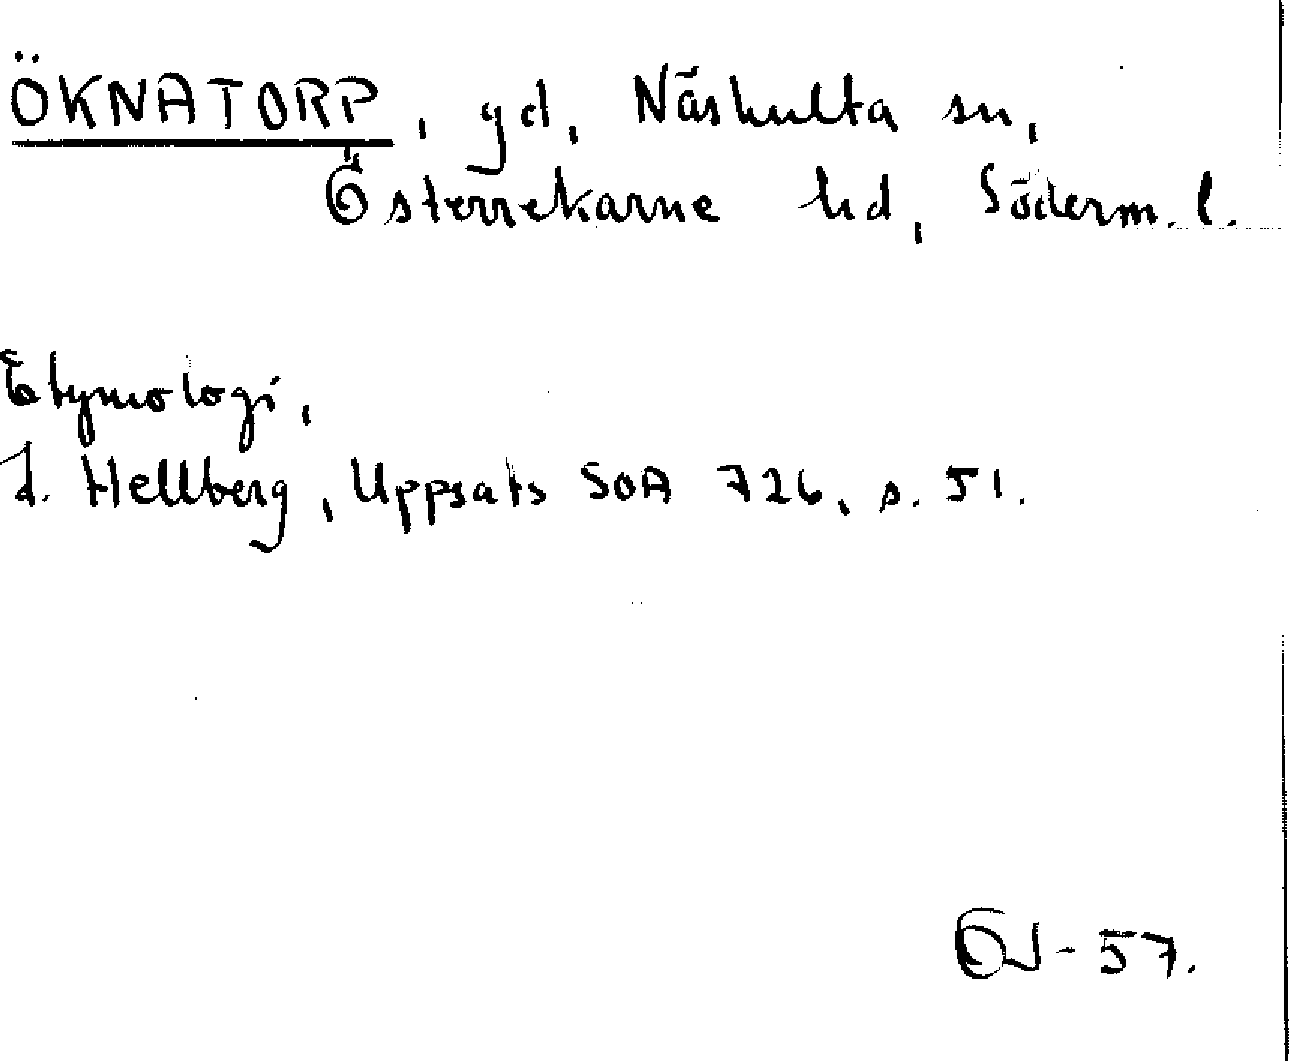 ÖKNATORP, gd, Näshulta sn,
Österrekarne hd, Söderm. l.
Etymologi,
L. Hellberg, Uppsats SOA 726, s. 51.
57.